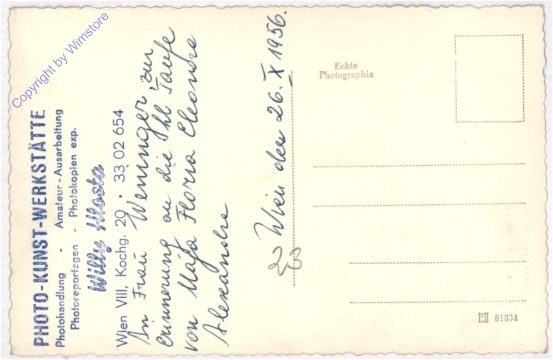 Copyright by Wimstore
PHOTO-KUNST-WERKSTÄTTE
Photohandlung - Amateur-Ausarbeitung
Photoreportagen - Photokopien exp.
Willy
Wien VIII, Kochg. 20 · 33 02 654
An Frau Wenninger zur
Erinnerung an die Hl. Taufe
von Maja Floria Eleonora
Alexandra
Wien den 26. X 1956.
23
Echte
Photographie
81334